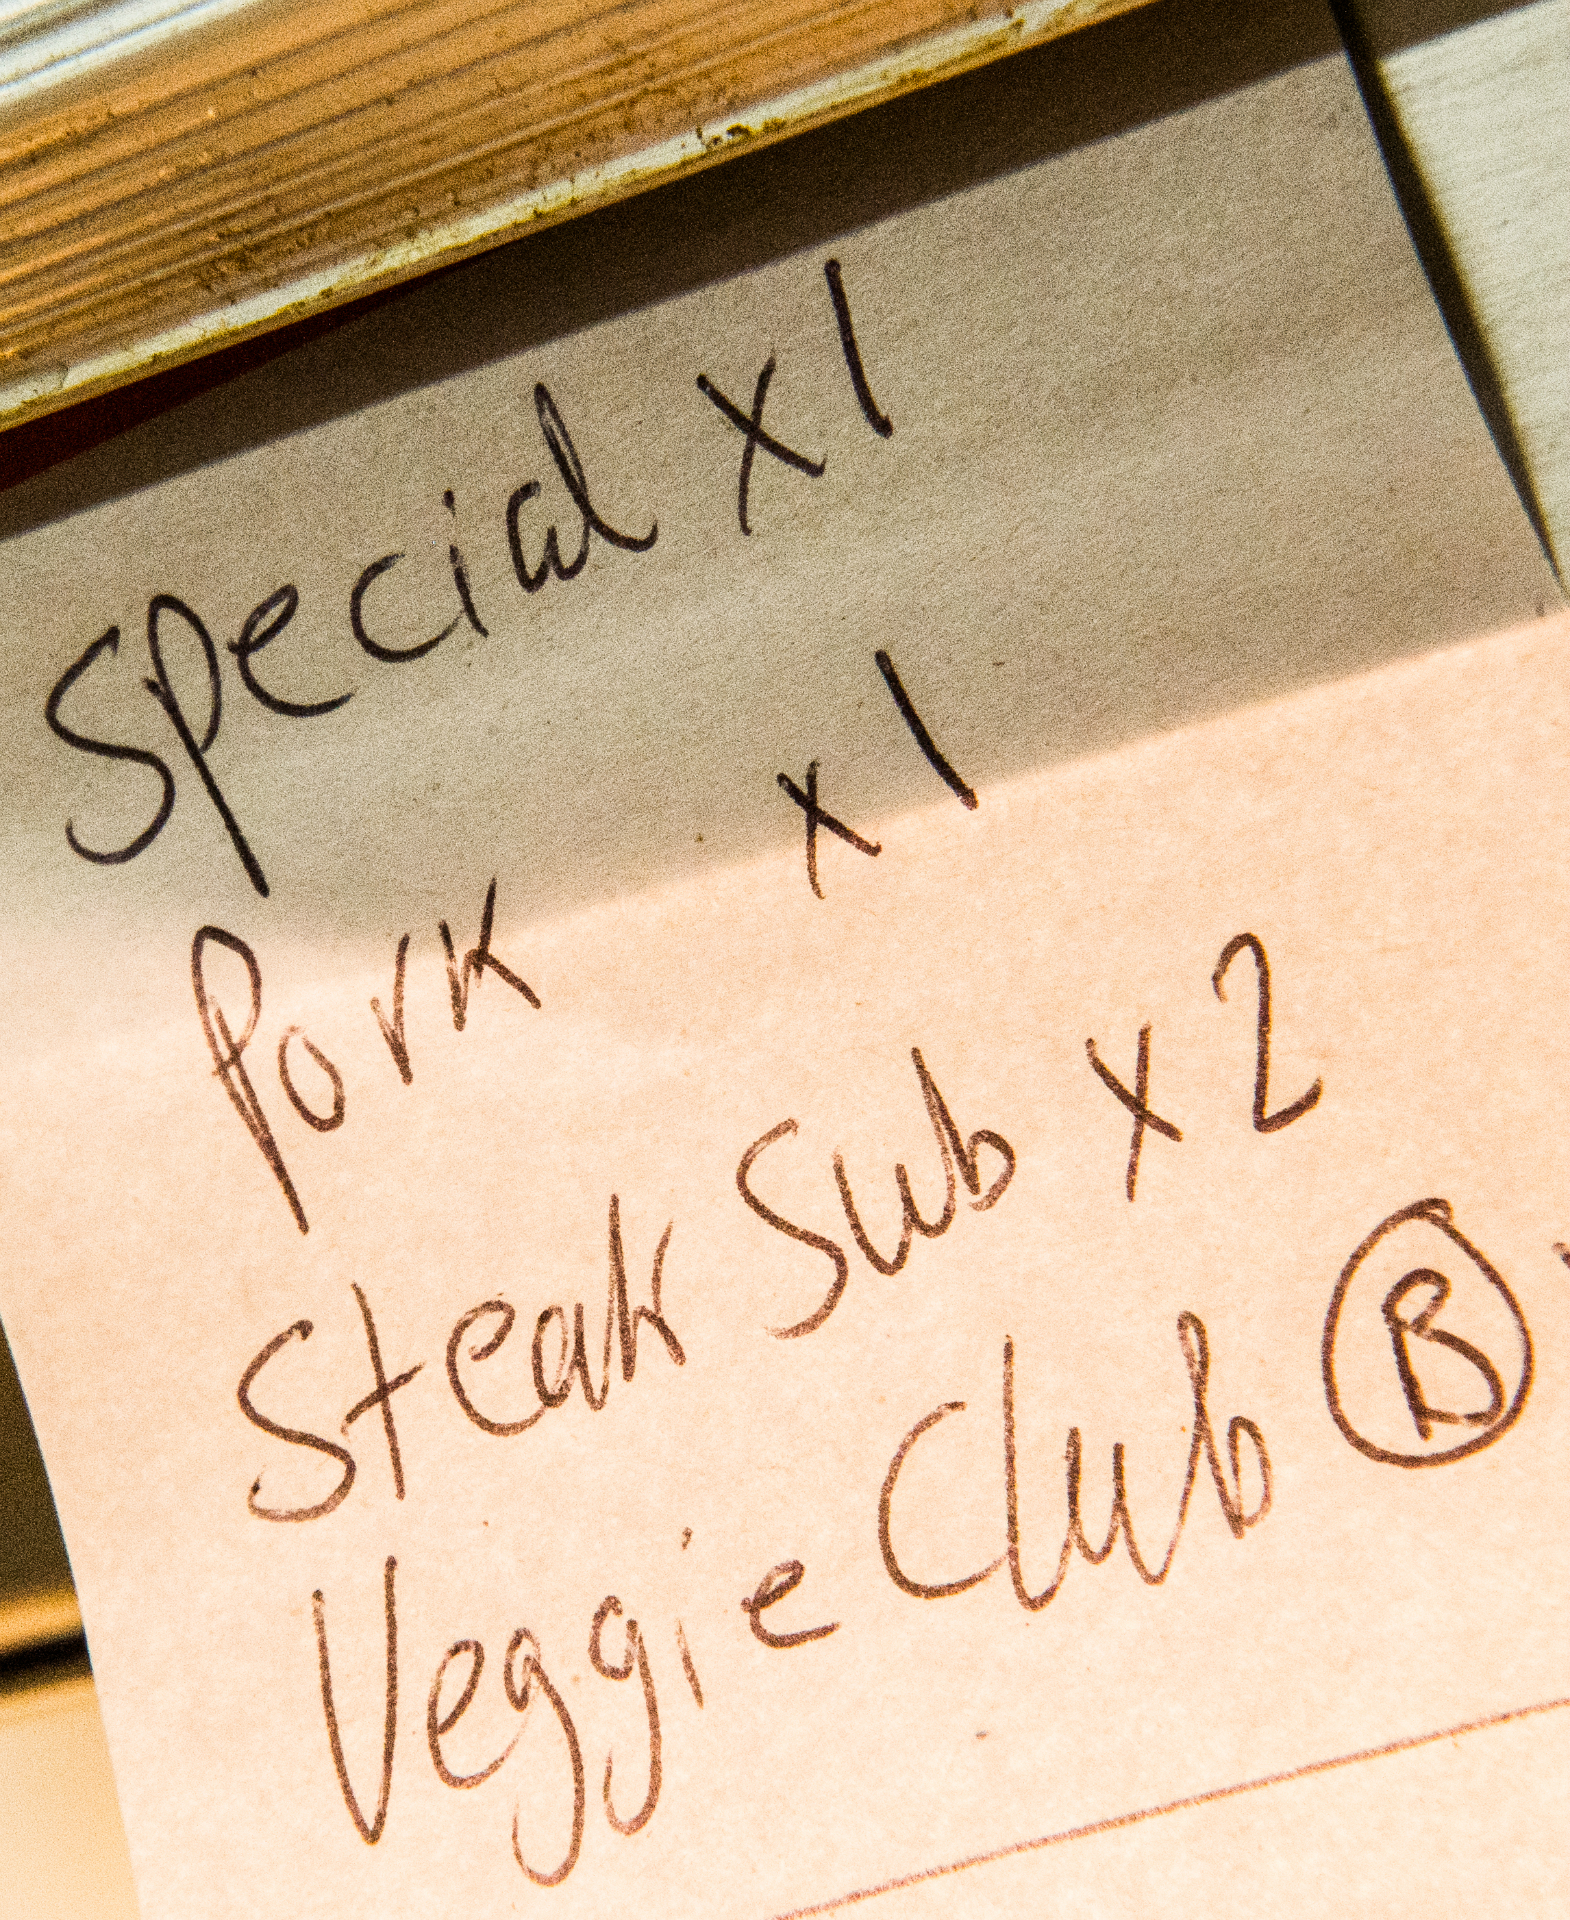 Special x 1
Pork x 1
Steak Sub x 2
Veggie Club B